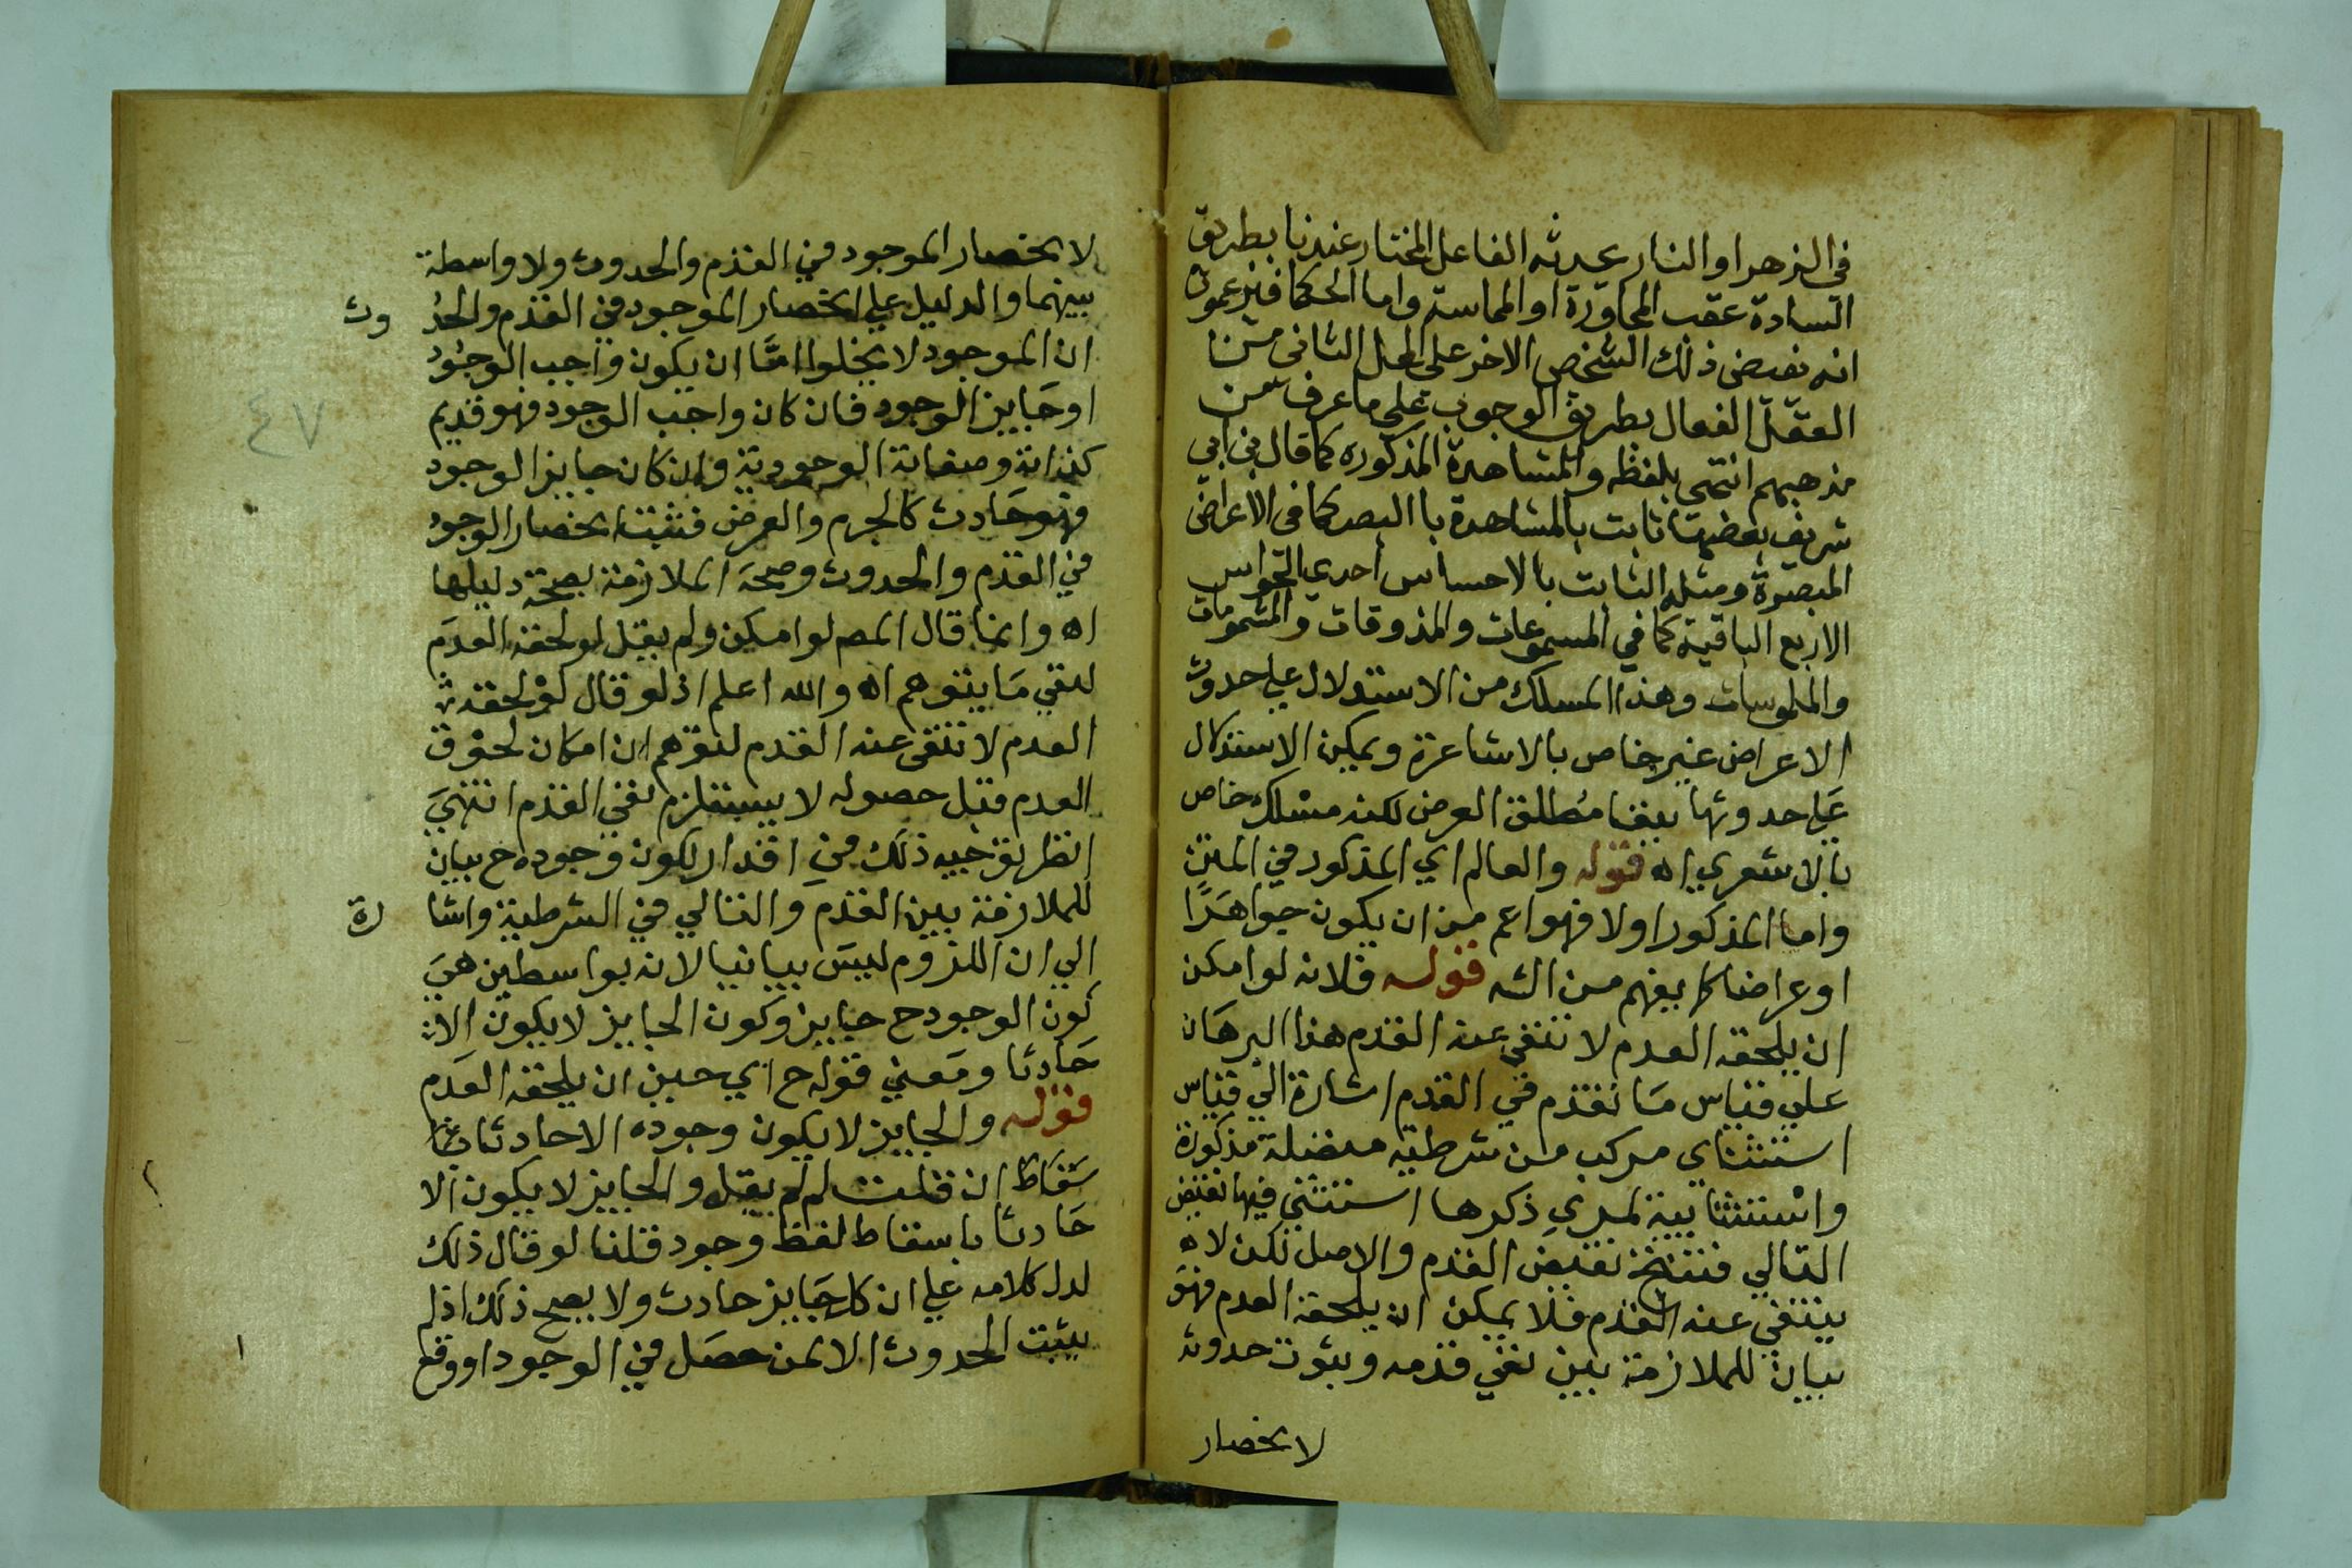 في الزهر او النار يحدثه الفاعل المختار عندنا بطريق
السادة عقب المجاورة او المماسة واما الحكما فيزعمون
انه نقيض ذلك الشخص الاخر على المحل الثاني من
العقل الفعال بطريق الوجوب علي ما عرف من
مذهبهم انتهى بلفظه والمشاهدة المذكوره كما قال بن ابي
شريف بعضها ثابت بالمشاهدة باالبصر كما في الاعراض
المبصرة ومثله الثابت بالاحساس احدي الحواس
الاربع الباقية كما في المسموعات والمذوقات والمشمومات
والملموسات وهذا المسلك من الاستدلال علي حدوث
الاعراض غير خاص بالاشاعرة ويمكن الاستدلال
علي حدوثها ببقا مطلق العرض لكنه مسلك خاص
بالاشعري اه قوله والعالم اي المذكور في المتن
واما المذكور اولا فهو اعم من ان يكون جواهرا
او عراضا كما يفهم من الشه قوله فلانه لو امكن
ان يلحقه العدم لا نتفي عنه القدم هذا البرهان
علي قياس ما تقدم في القدم اشارة الي قياس
استثناي مركب من شرطية متصلة مذكورة
واستثنايية لم يري ذكرها استثني فيها نقيض
التالي فتنتج نقيض القدم والاصل لكن لا
ينتفي عنه القدم فلا يمكن ان يلحقه العدم فهو
بيان للملازمة بين نفي قدمه وثبوت حدوثه
لانحصار
لانحصار الموجود في القدم والحدوث ولا واسطة
بينهما والدليل علي انحصار الموجود في القدم والحدوث
ان الموجود لا يخلوا اما ان يكون واجب الوجود
او جايز الوجود فان كان واجب الوجود فهو قديم
كذاته وصفاته الوجودية وان كان جايز الوجود
فهو حادث كالجرم والعرض فثبت انحصار الوجود
في القدم والحدوث وصحة الملازمة بصحة دليلها
اه وانما قال المصم لو امكن ولم يقل لو لحقه العدم
لدفي ما يتوهم اه والله اعلم اذ لو قال لو لحقه
العدم لا نتفى عنه القدم لتوهم ان امكان لحوق
العدم قبل حصوله لا يستلزم نفي القدم انتهي
انظر توجيه ذلك في اقدار لكون وجوده ح بيان
للملازمة بين القدم والتالي في الشرطية واشارة
الي ان اللزوم ليس بيانيا لانه بواسطين هي
كون الوجود ح جايز وكون الجايز لا يكون الا
حادثا ومعني قوله ح اي حين ان يلحقه العدم
قوله والجايز لا يكون وجوده الا حادثا
سقاط ان قلت لم لم يقل والجايز لا يكون الا
حادثا باسقاط لفظ وجود قلنا لو قال ذلك
لدل كلامه علي ان كل جايز حادث ولا يصح ذلك اذ لم
يثبت الحدوث الا لمن حصل في الوجود او وقع
٤٧